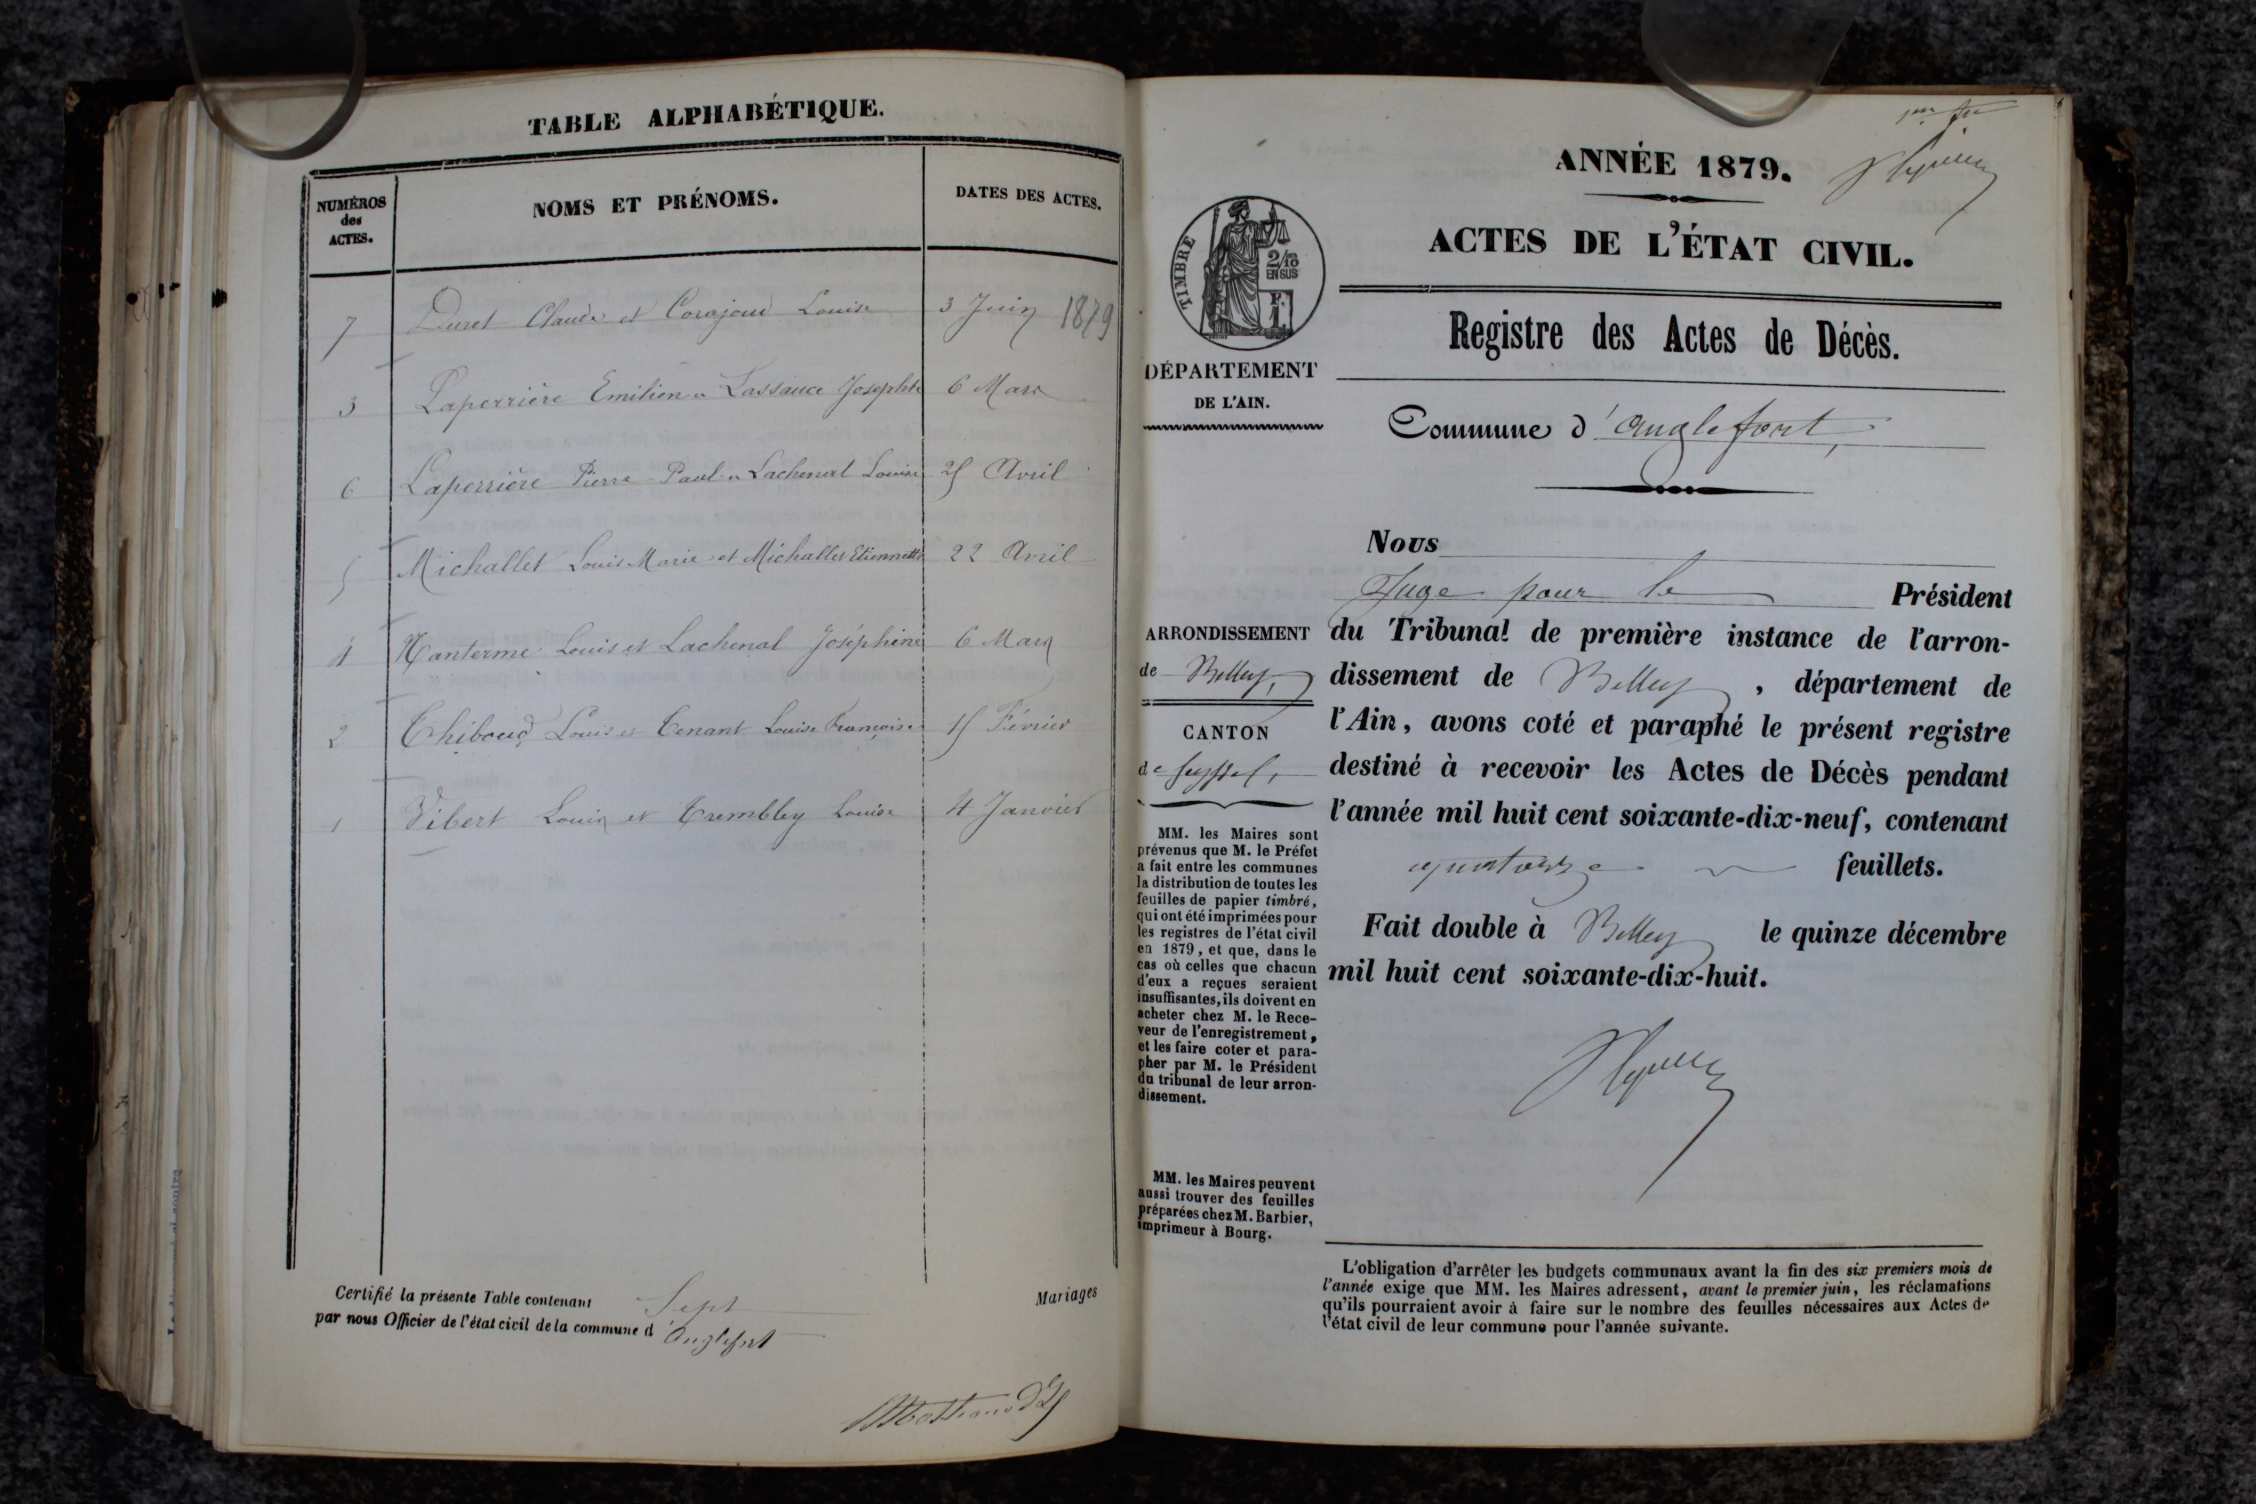 TABLE ALPHABÉTIQUE.
NUMÉROS des ACTES. NOMS ET PRÉNOMS. DATES DES ACTES.
7 Duret Claude et Corajoud Louise 3 Juin 1879
3 Laperrière Emilien et Lassauce Josephte 6 Mars
6 Laperrière Pierre Paul et Lachenal Louise 25 Avril
5 Michallet Louis Marie et Michallet Etiennette 22 Avril
4 Nanterme Louis et Lachenal Joséphine 6 Mars
2 Thiboud Louis et Tenant Louise Françoise 15 Février
1 Vibert Louis et Trembley Louise 4 Janvier
Certifié la présente Table contenant Sept Mariages
par nous Officier de l'état civil de la commune d'Anglefort
ANNÉE 1879.
ACTES DE L'ÉTAT CIVIL.
TIMBRE
2/10
EN SUS
F.
1
DÉPARTEMENT
DE L'AIN.
Registre des Actes de Décès.
Commune d'Anglefort,
ARRONDISSEMENT
de Belley,
CANTON
de Seyssel,
MM. les Maires sont
prévenus que M. le Préfet
a fait entre les communes
la distribution de toutes les
feuilles de papier timbré,
qui ont été imprimées pour
les registres de l'état civil
en 1879, et que, dans le
cas où celles que chacun
d'eux a reçues seraient
insuffisantes, ils doivent en
acheter chez M. le Rece-
veur de l'enregistrement,
et les faire coter et para-
pher par M. le Président
du tribunal de leur arron-
dissement.
MM. les Maires peuvent
aussi trouver des feuilles
préparées chez M. Barbier,
imprimeur à Bourg.
Nous
Juge pour le Président
du Tribunal de première instance de l'arron-
dissement de Belley, département de
l'Ain, avons coté et paraphé le présent registre
destiné à recevoir les Actes de Décès pendant
l'année mil huit cent soixante-dix-neuf, contenant
quatorze feuillets.
Fait double à Belley le quinze décembre
mil huit cent soixante-dix-huit.
L'obligation d'arrêter les budgets communaux avant la fin des six premiers mois de
l'année exige que MM. les Maires adressent, avant le premier juin, les réclamations
qu'ils pourraient avoir à faire sur le nombre des feuilles nécessaires aux Actes de
l'état civil de leur commune pour l'année suivante.